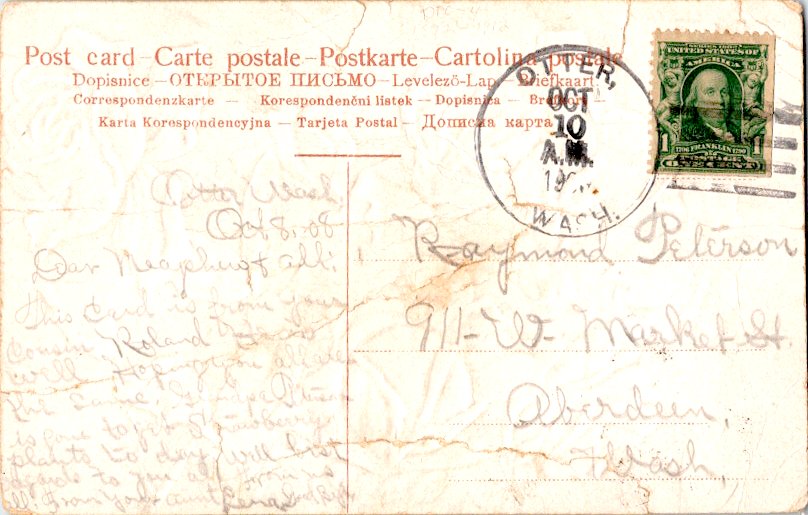 Post card – Carte postale – Postkarte – Cartolina postale
Dopisnice – ОТКРЫТОЕ ПИСЬМО – Levelező-Lap – Briefkaart
Correspondenzkarte — Korespondenční listek — Dopisnica — Brefkort
Karta Korespondencyjna — Tarjeta Postal — Дописна карта
OTTER,
OCT
10
A.M.
WASH.
SERIES 1902
UNITED STATES OF
AMERICA
1706 FRANKLIN 1790
1 1
POSTAGE
ONE CENT
Wash.
Oct 8, -08
Dear all:
this card is from your
cousin Roland
well. Hoping you all are
the same.
is gone to get Strawberry
plants to day. Will best
to you all from us
all. From your aunt Lena
Raymond Peterson
911-W- Market St.
Aberdeen,
Wash,